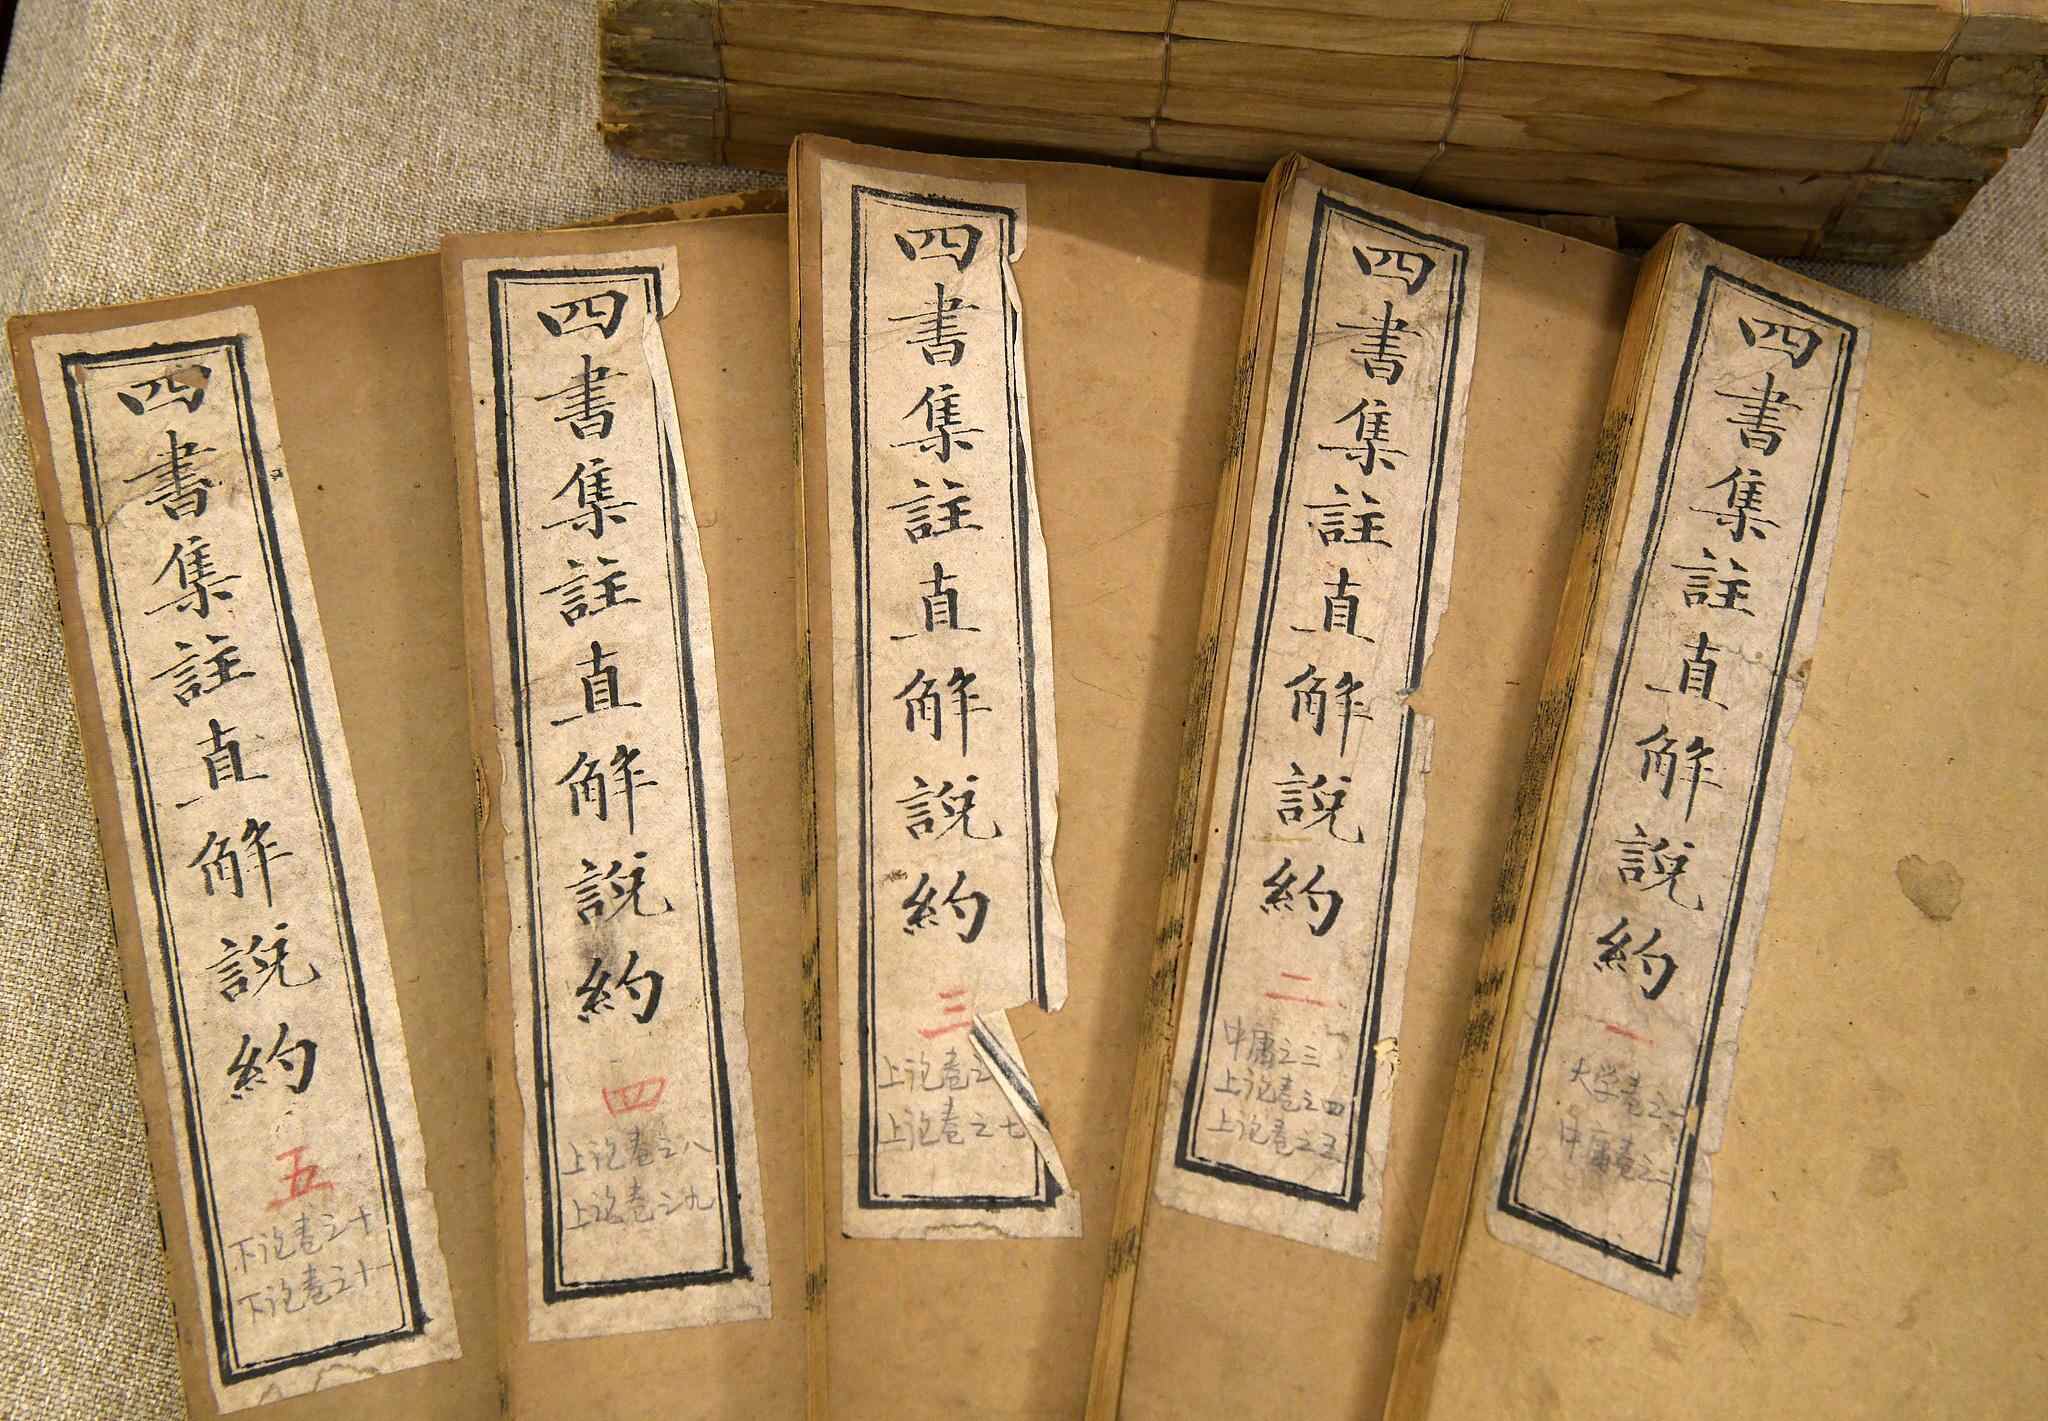 四書集註直解說約
五
下论卷之十
下论卷之十一
四書集註直解說約
四
上论卷之八
上论卷之九
四書集註直解說約
三
上论卷之
上论卷之七
四書集註直解說約
二
中庸之三
上论卷之四
上论卷之五
四書集註直解說約
一
大学卷之一
中庸卷之二